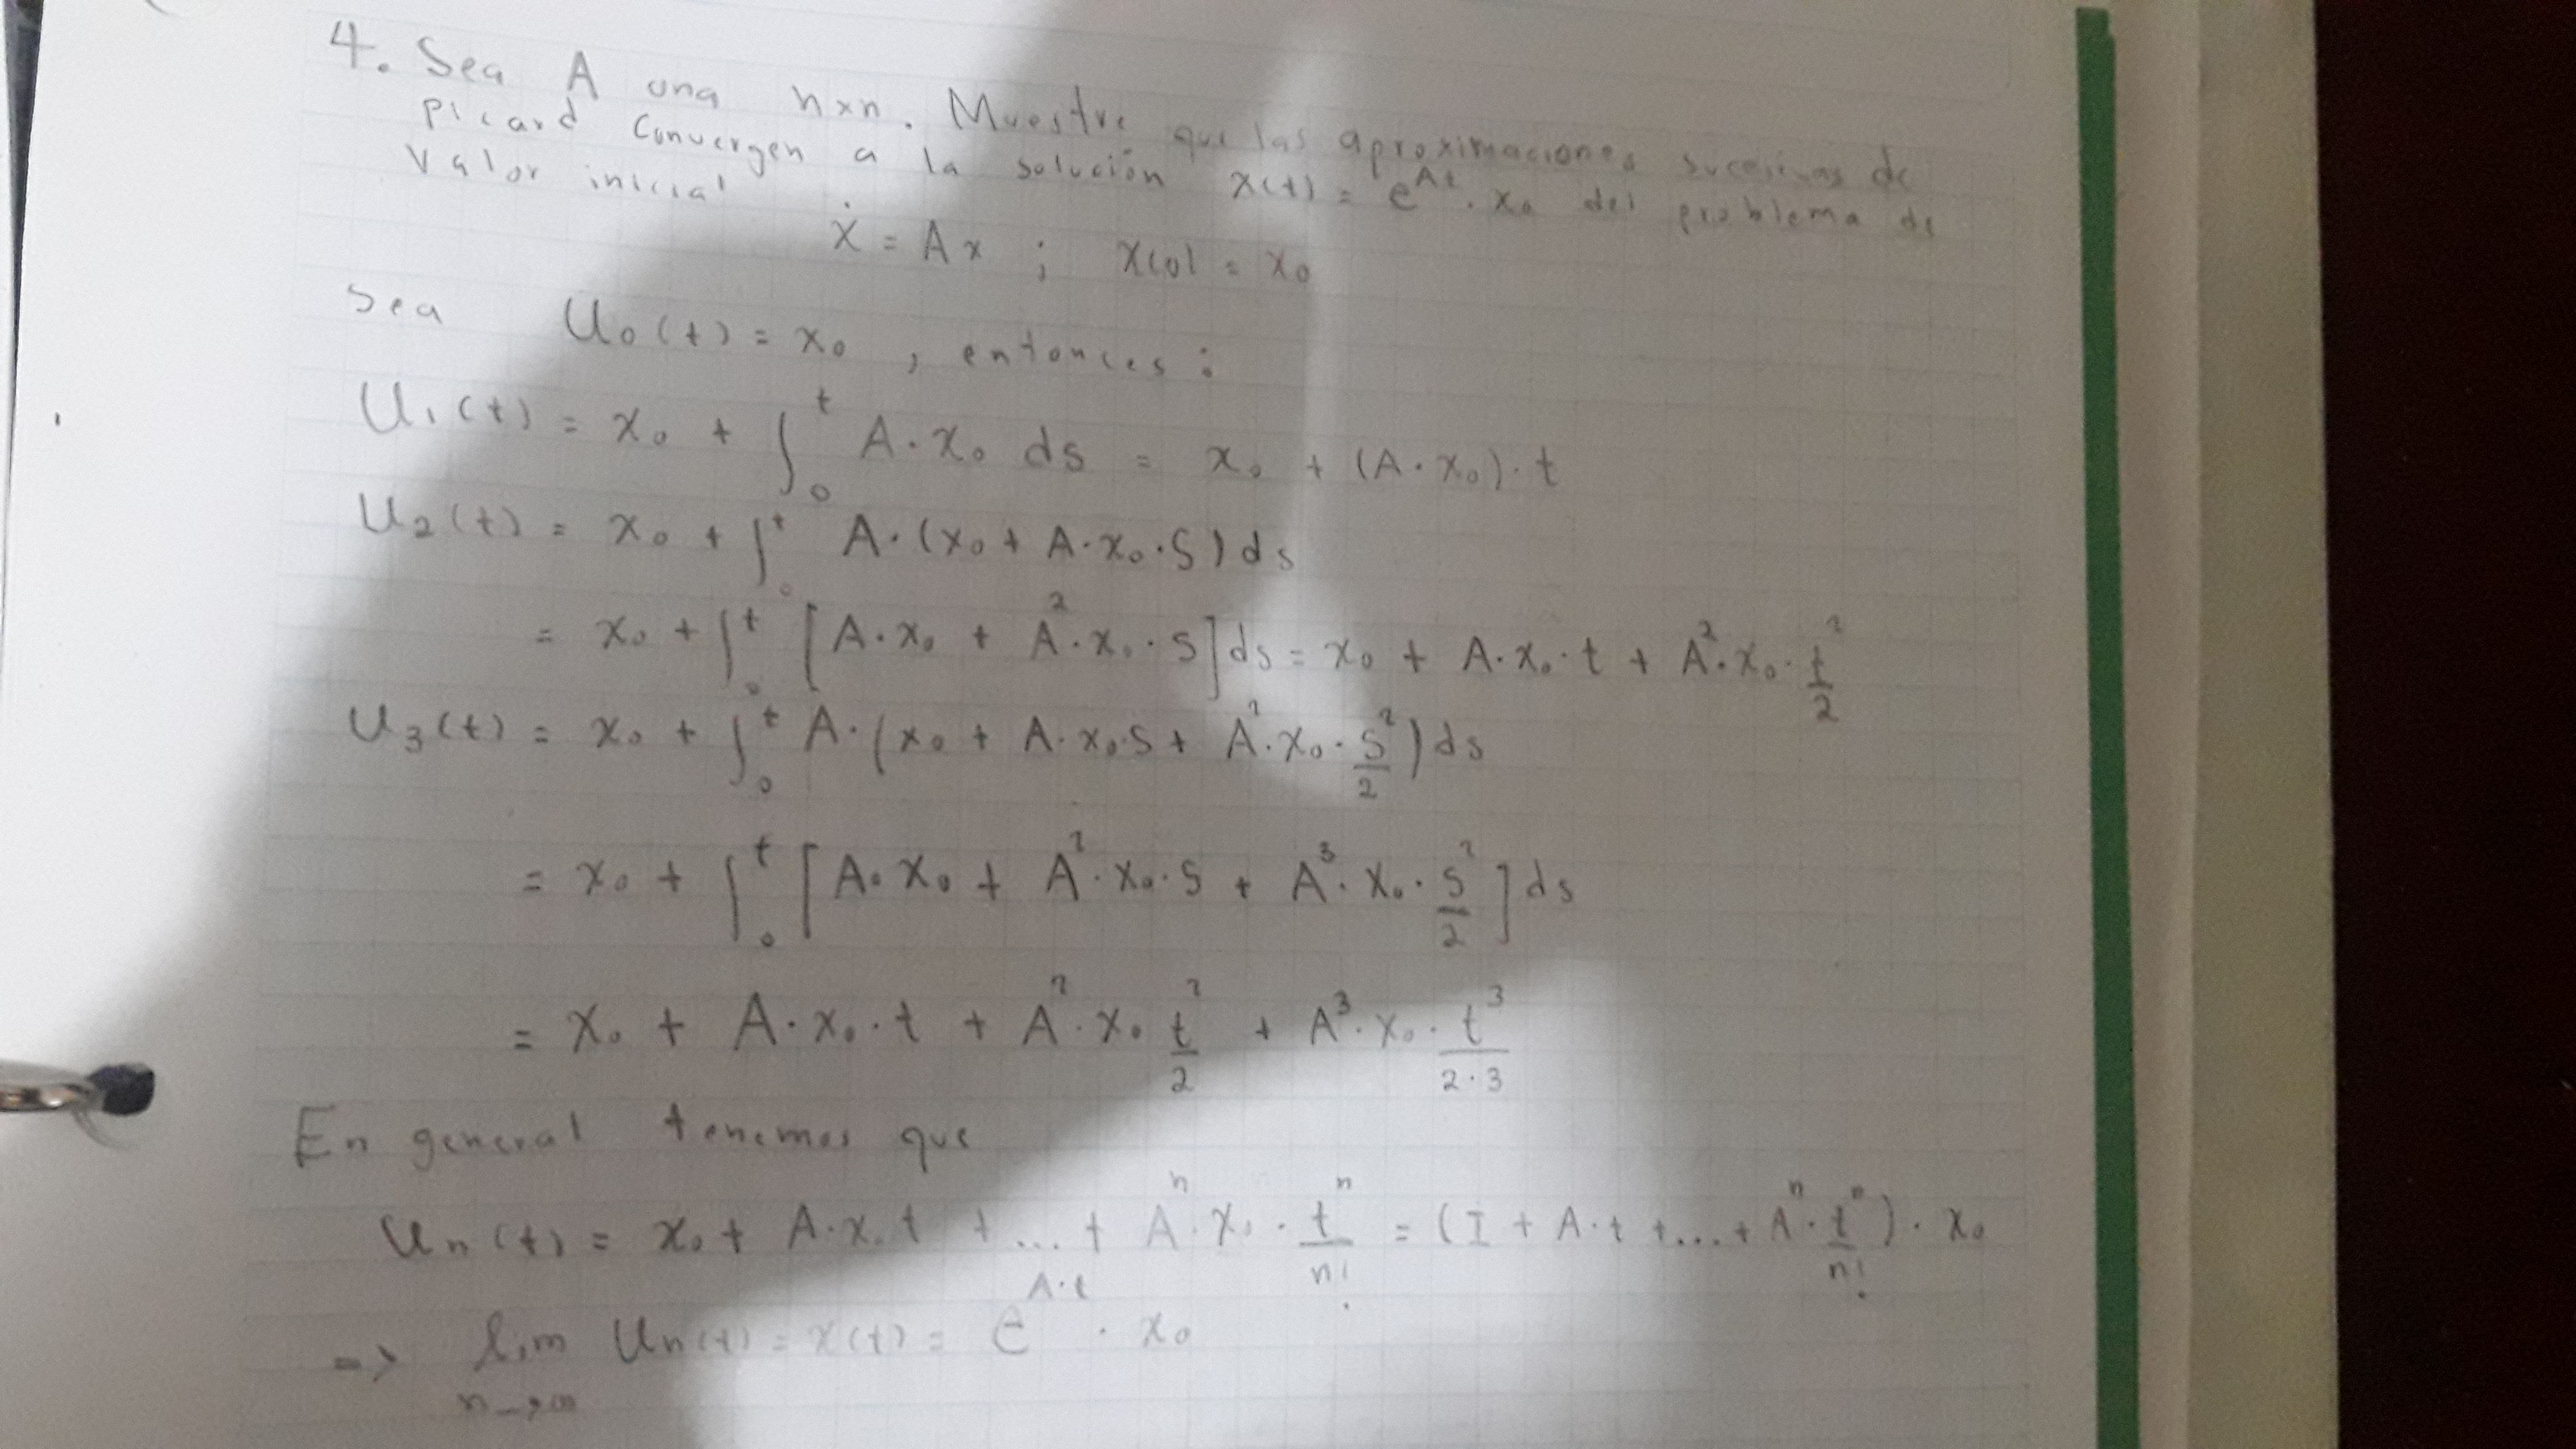 4. Sea A una nxn. Muestre que las aproximaciones sucesivas de
Picard convergen a la solución x(t) = e^{At} · x₀ del problema de
valor inicial
ẋ = Ax ; x(0) = x₀
Sea U₀(t) = x₀, entonces:
U₁(t) = x₀ + ∫₀ᵗ A·x₀ ds = x₀ + (A·x₀)·t
U₂(t) = x₀ + ∫₀ᵗ A·(x₀ + A·x₀·s) ds
= x₀ + ∫₀ᵗ [A·x₀ + A²·x₀·s] ds = x₀ + A·x₀·t + A²·x₀·t²/2
U₃(t) = x₀ + ∫₀ᵗ A·(x₀ + A·x₀·s + A²·x₀·s²/2) ds
= x₀ + ∫₀ᵗ [A·x₀ + A²·x₀·s + A³·x₀·s²/2] ds
= x₀ + A·x₀·t + A²·x₀·t²/2 + A³·x₀·t³/(2·3)
En general tenemos que
Uₙ(t) = x₀ + A·x₀t + ... + Aⁿ·x₀·tⁿ/n! = (I + A·t + ... + Aⁿ·tⁿ/n!)·x₀
=> lim n→∞ Uₙ(t) = x(t) = e^{A·t} · x₀